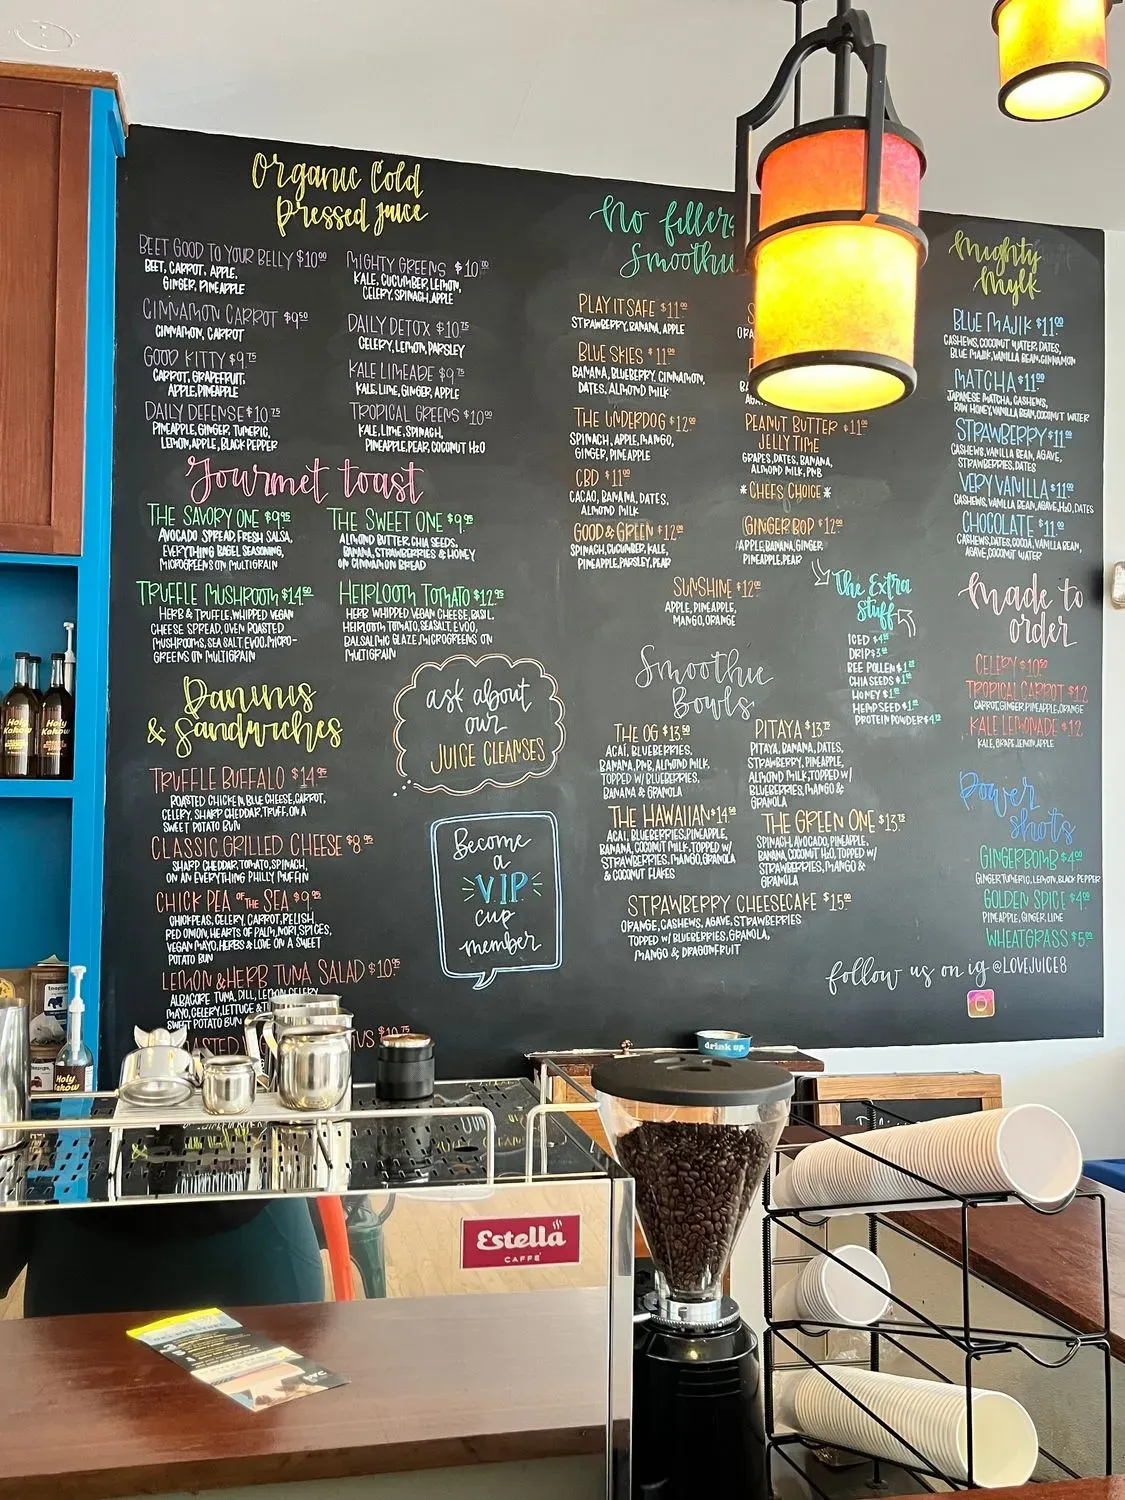 Organic Cold
Pressed Juice
BEET GOOD TO YOUR BELLY $10⁰⁰
BEET, CARROT, APPLE,
GINGER, PINEAPPLE
CINNAMON CARROT $9⁵⁰
CINNAMON, CARROT
GOOD KITTY $9.⁷⁵
CARROT, GRAPEFRUIT,
APPLE, PINEAPPLE
DAILY DEFENSE $10.⁷⁵
PINEAPPLE, GINGER, TUMERIC,
LEMON, APPLE, BLACK PEPPER
MIGHTY GREENS $10.⁰⁰
KALE, CUCUMBER, LEMON,
CELERY, SPINACH, APPLE
DAILY DETOX $10.⁷⁵
CELERY, LEMON, PARSLEY
KALE LIMEADE $9.⁷⁵
KALE, LIME, GINGER, APPLE
TROPICAL GREENS $10⁰⁰
KALE, LIME, SPINACH,
PINEAPPLE, PEAR, COCONUT H2O
Gourmet toast
THE SAVORY ONE $9.⁹⁵
AVOCADO SPREAD, FRESH SALSA,
EVERYTHING BAGEL SEASONING,
MICROGREENS ON MULTIGRAIN
THE SWEET ONE $9.⁹⁵
ALMOND BUTTER, CHIA SEEDS,
BANANA, STRAWBERRIES & HONEY
ON CINNAMON BREAD
TRUFFLE MUSHROOM $14.⁰⁰
HERB & TRUFFLE, WHIPPED VEGAN
CHEESE SPREAD, OVEN ROASTED
MUSHROOMS, SEA SALT, EVOO, MICRO-
GREENS ON MULTIGRAIN
HEIRLOOM TOMATO $12.⁹⁵
HERB WHIPPED VEGAN CHEESE, BASIL,
HEIRLOOM TOMATO, SEASALT, EVOO,
BALSALMIC GLAZE, MICROGREENS ON
MULTIGRAIN
Paninis
& Sandwiches
TRUFFLE BUFFALO $14.⁹⁵
ROASTED CHICKEN, BLUE CHEESE, CARROT,
CELERY, SHARP CHEDDAR, TRUFF, ON A
SWEET POTATO BUN
CLASSIC GRILLED CHEESE $8.⁹⁵
SHARP CHEDDAR, TOMATO, SPINACH,
ON AN EVERYTHING PHILLY MUFFIN
CHICK PEA OF THE SEA $9.⁹⁵
CHICKPEAS, CELERY, CARROT, RELISH
RED ONION, HEARTS OF PALM, NORI, SPICES,
VEGAN MAYO, HERBS & LOVE ON A SWEET
POTATO BUN
LEMON & HERB TUNA SALAD $10.⁹⁵
ALBACORE TUNA, DILL, LEMON, CELERY,
MAYO, CELERY, LETTUCE & T
SWEET POTATO BUN
ASTED
US $10.⁷⁵
ask about
our
JUICE CLEANSES
Become
a
VIP
cup
member
No fillers
Smoothie
PLAY IT SAFE $11⁰⁰
STRAWBERRY, BANANA, APPLE
BLUE SKIES $11⁰⁰
BANANA, BLUEBERRY, CINNAMON,
DATES, ALMOND MILK
THE UNDERDOG $12⁰⁰
SPINACH, APPLE, MANGO,
GINGER, PINEAPPLE
CBD $11⁰⁰
CACAO, BANANA, DATES,
ALMOND MILK
GOOD & GREEN $12⁰⁰
SPINACH, CUCUMBER, KALE,
PINEAPPLE, PARSLEY, PEAR
PEANUT BUTTER $11⁰⁰
JELLY TIME
GRAPES, DATES, BANANA,
ALMOND MILK, PNB
*CHEFS CHOICE*
GINGER BOP $12⁰⁰
APPLE, BANANA, GINGER
PINEAPPLE, PEAR
SUNSHINE $12⁰⁰
APPLE, PINEAPPLE,
MANGO, ORANGE
The Extra
Stuff
ICED $4
DRIP $3
BEE POLLEN $1
CHIA SEEDS $1
HONEY $1
HEMP SEED $1
PROTEIN POWDER $4
Smoothie
Bowls
THE OG $13.⁵⁰
ACAI, BLUEBERRIES,
BANANA, PNB, ALMOND MILK,
TOPPED W/ BLUEBERRIES,
BANANA & GRANOLA
PITAYA $13.⁷⁵
PITAYA, BANANA, DATES,
STRAWBERRY, PINEAPPLE,
ALMOND MILK, TOPPED W/
BLUEBERRIES, MANGO &
GRANOLA
THE HAWAIIAN $14.⁵⁰
ACAI, BLUEBERRIES, PINEAPPLE,
BANANA, COCONUT MILK, TOPPED W/
STRAWBERRIES, MANGO, GRANOLA
& COCONUT FLAKES
THE GREEN ONE $13.⁷⁵
SPINACH, AVOCADO, PINEAPPLE,
BANANA, COCONUT H2O, TOPPED W/
STRAWBERRIES, MANGO &
GRANOLA
STRAWBERRY CHEESECAKE $15.⁰⁰
ORANGE, CASHEWS, AGAVE, STRAWBERRIES
TOPPED W/ BLUEBERRIES, GRANOLA,
MANGO & DRAGONFRUIT
Mighty
Mylk
BLUE MAJIK $11.⁰⁰
CASHEWS, COCONUT WATER, DATES,
BLUE MAJIK, VANILLA BEAN, CINNAMON
MATCHA $11⁰⁰
JAPANESE MATCHA, CASHEWS,
RAW HONEY, VANILLA BEAN, COCONUT WATER
STRAWBERRY $11⁰⁰
CASHEWS, VANILLA BEAN, AGAVE,
STRAWBERRIES, DATES
VERY VANILLA $11⁰⁰
CASHEWS, VANILLA BEAN, AGAVE, H2O, DATES
CHOCOLATE $11⁰⁰
CASHEWS, DATES, COCOA, VANILLA BEAN,
AGAVE, COCONUT WATER
Made to
order
CELERY $10.⁵⁰
TROPICAL CARROT $12
CARROT, GINGER, PINEAPPLE, ORANGE
KALE LEMONADE $12
KALE, GRAPE, LEMON, APPLE
Power
Shots
GINGERBOMB $4.⁰⁰
GINGER, TUMERIC, LEMON, BLACK PEPPER
GOLDEN SPICE $4⁰⁰
PINEAPPLE, GINGER, LIME
WHEATGRASS $5.⁰⁰
follow us on ig @LOVEJUICE8
Holy
Kakow
Holy
Kakow
Holy
Kakow
drink up
Estella
CAFFÈ